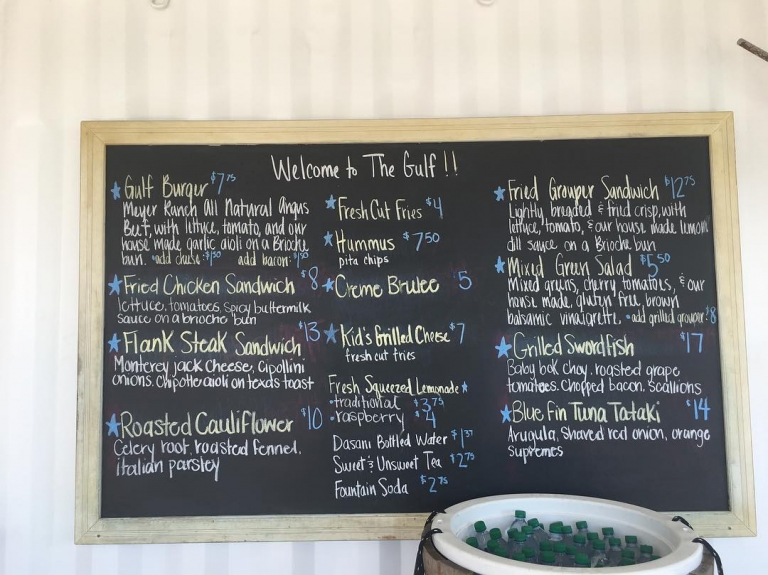 Welcome to The Gulf!!
Gulf Burger $7.75
Meyer Ranch All Natural Angus
Beef, with lettuce, tomato, and our
house made garlic aioli on a Brioche
bun. •add cheese: $1.50 add bacon: $1.50
Fried Chicken Sandwich $8
lettuce, tomatoes, spicy buttermilk
sauce on a brioche bun
Flank Steak Sandwich $13
Monterey jack cheese, Cipollini
onions. Chipotle aioli on texas toast
Roasted Cauliflower $10
Celery root, roasted fennel,
italian parsley
Fresh Cut Fries $4
Hummus $7.50
pita chips
Creme Brulee $5
Kid's Grilled Cheese $7
fresh cut fries
Fresh Squeezed Lemonade
•traditional $3.75
•raspberry $4
Dasani Bottled Water
Sweet & Unsweet Tea $2.75
Fountain Soda $2.75
Fried Grouper Sandwich $12.75
Lightly breaded & fried crisp, with
lettuce, tomato, & our house made lemon
dill sauce on a Brioche bun
Mixed Green Salad $5.50
Mixed greens, cherry tomatoes, & our
house made, gluten free, brown
balsamic vinaigrette. •add grilled grouper: $8
Grilled Swordfish $17
Baby bok choy, roasted grape
tomatoes. Chopped bacon, scallions
Blue Fin Tuna Tataki $14
Arugula, Shaved red onion, orange
supremes